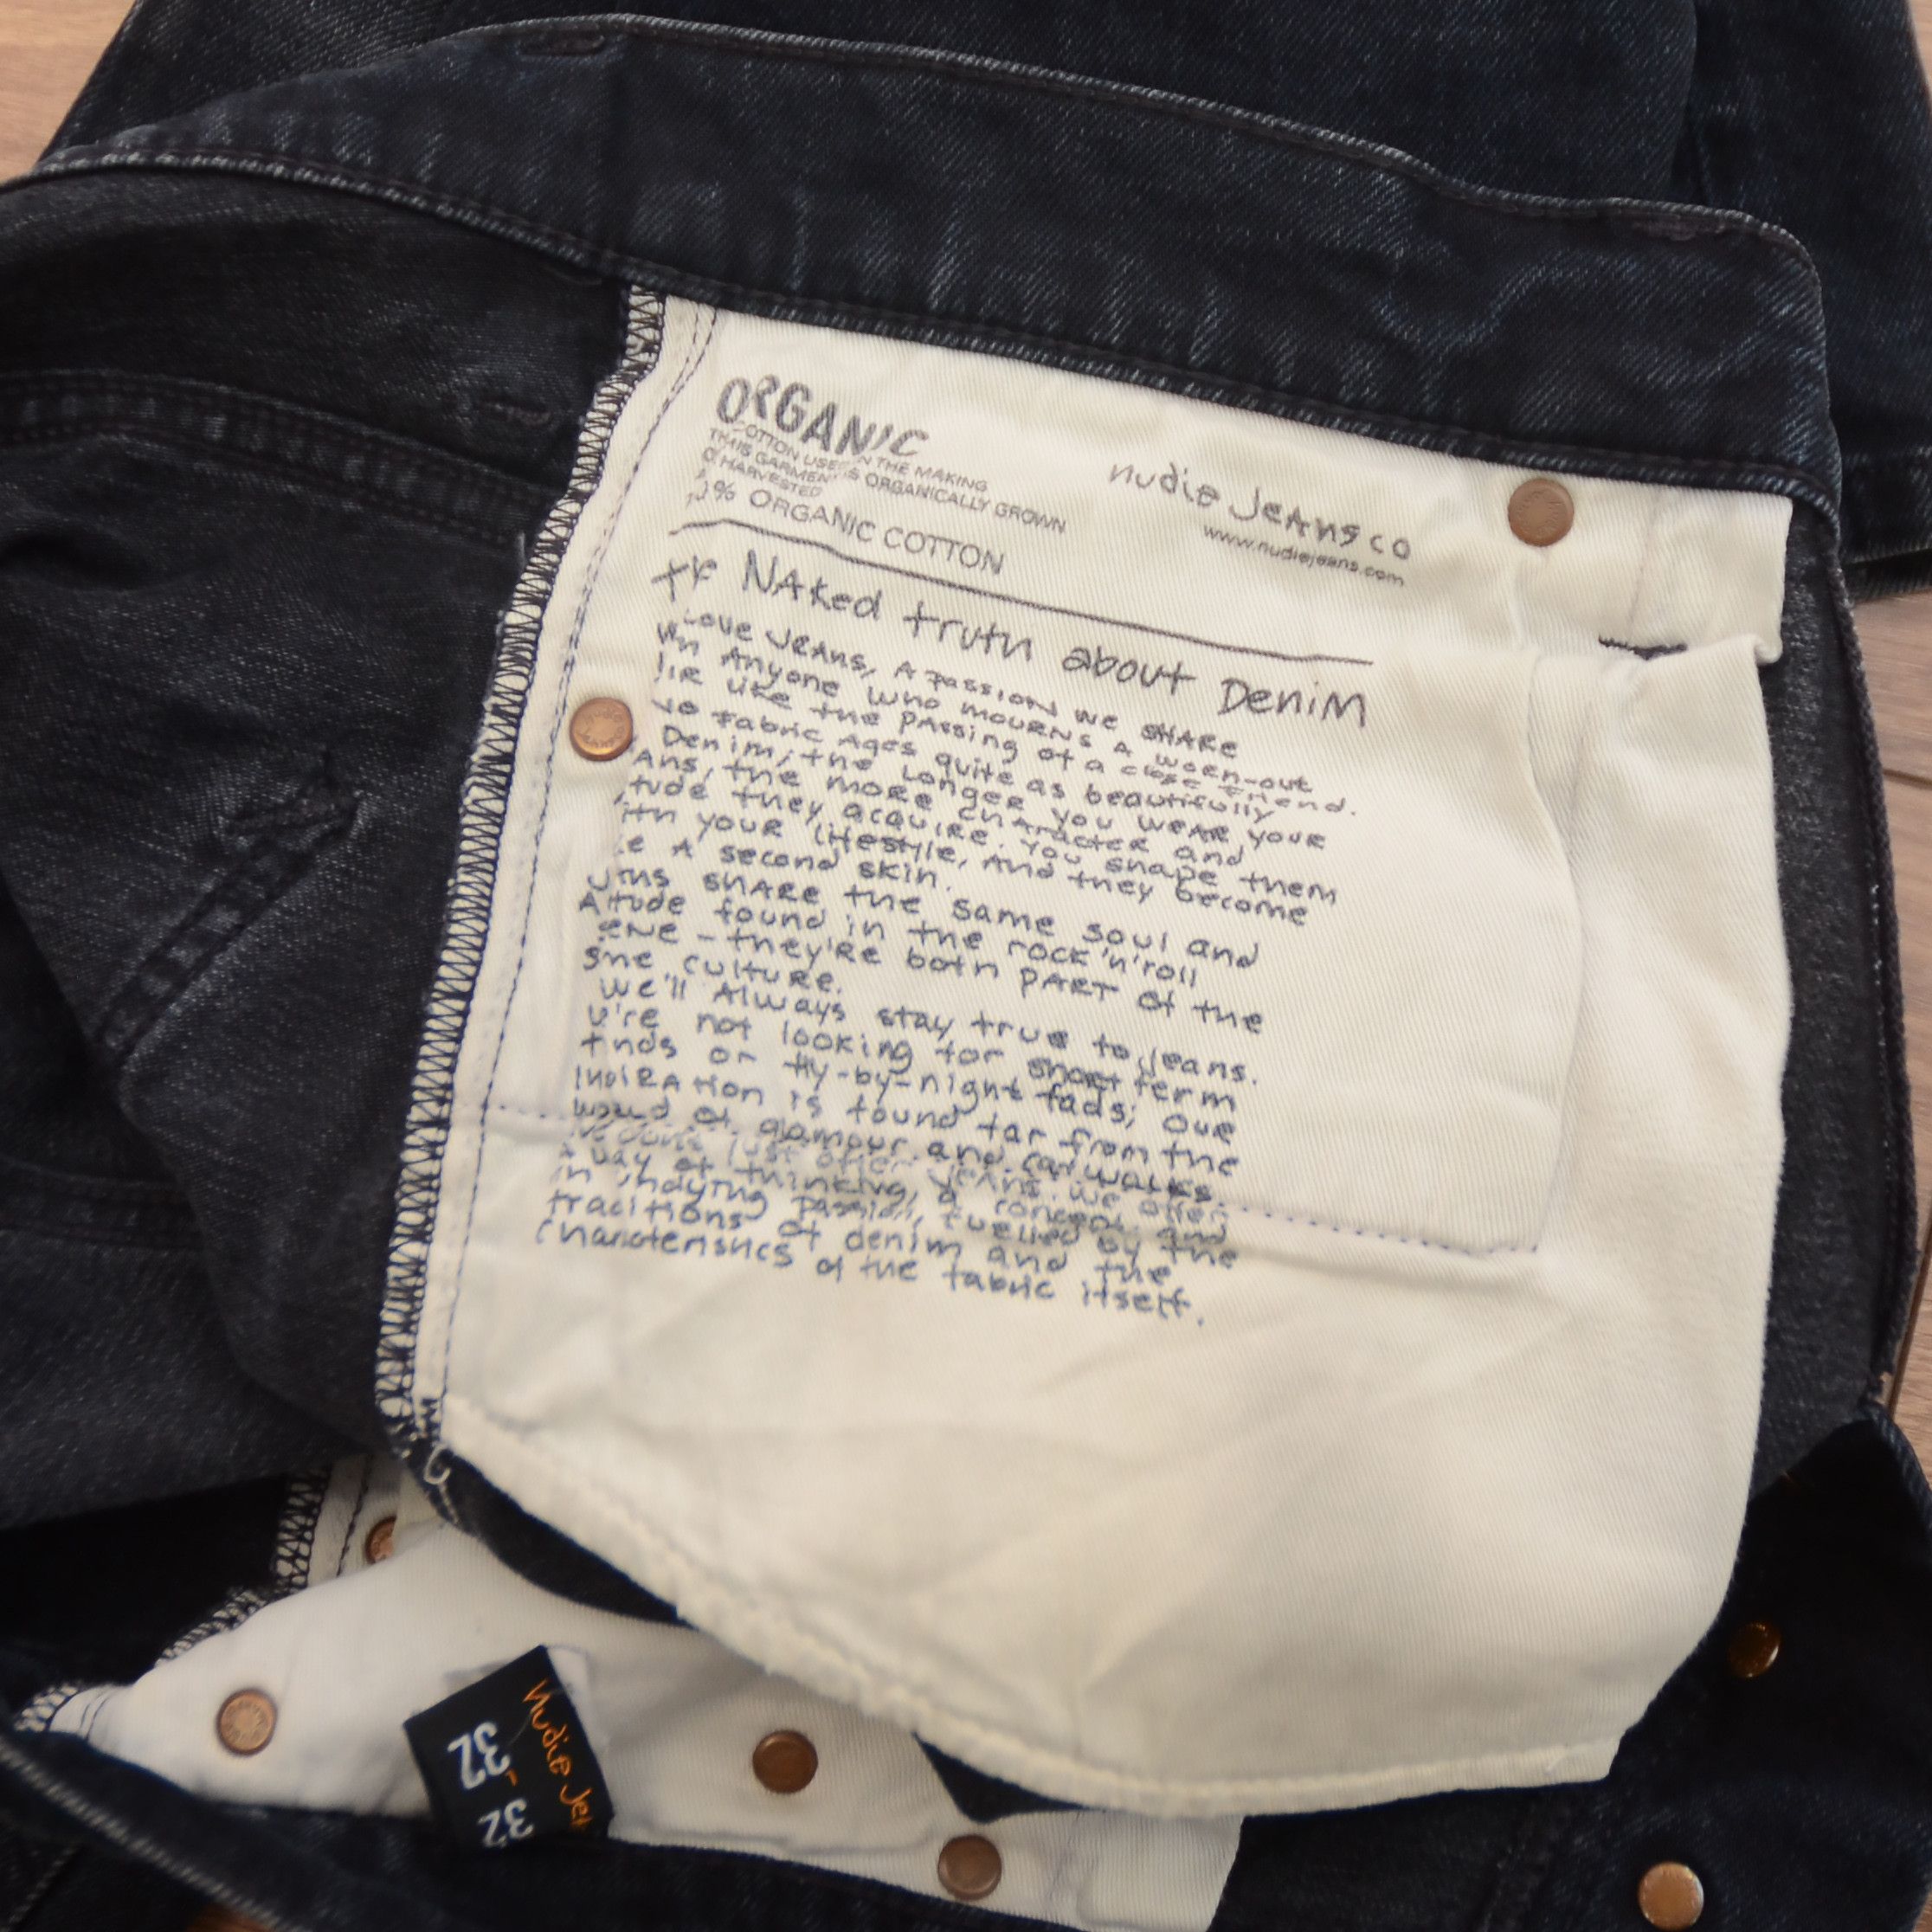 ORGANIC
COTTON USED IN THE MAKING
THIS GARMENT IS ORGANICALLY GROWN
HARVESTED
% ORGANIC COTTON
nudie jeans co
www.nudiejeans.com
Naked truth about Denim
Love jeans, a passion we share
anyone who mourns a worn-out
like the passing of a close friend.
fabric ages quite as beautifully
Denim; the longer you wear your
the more character and
they acquire. You shape them
your lifestyle, and they become
a second skin.
share the same soul and
found in the rock'n'roll
they're both part of the
culture.
We'll always stay true to jeans.
not looking for short term
or fly-by-night fads; Our
is found far from the
world of glamour and catwalks.
just offer jeans. We offer
of thinking, a concept and
undying passion, fuelled by the
traditions of denim and the
characteristics of the fabric itself.
nudie jea
32-32